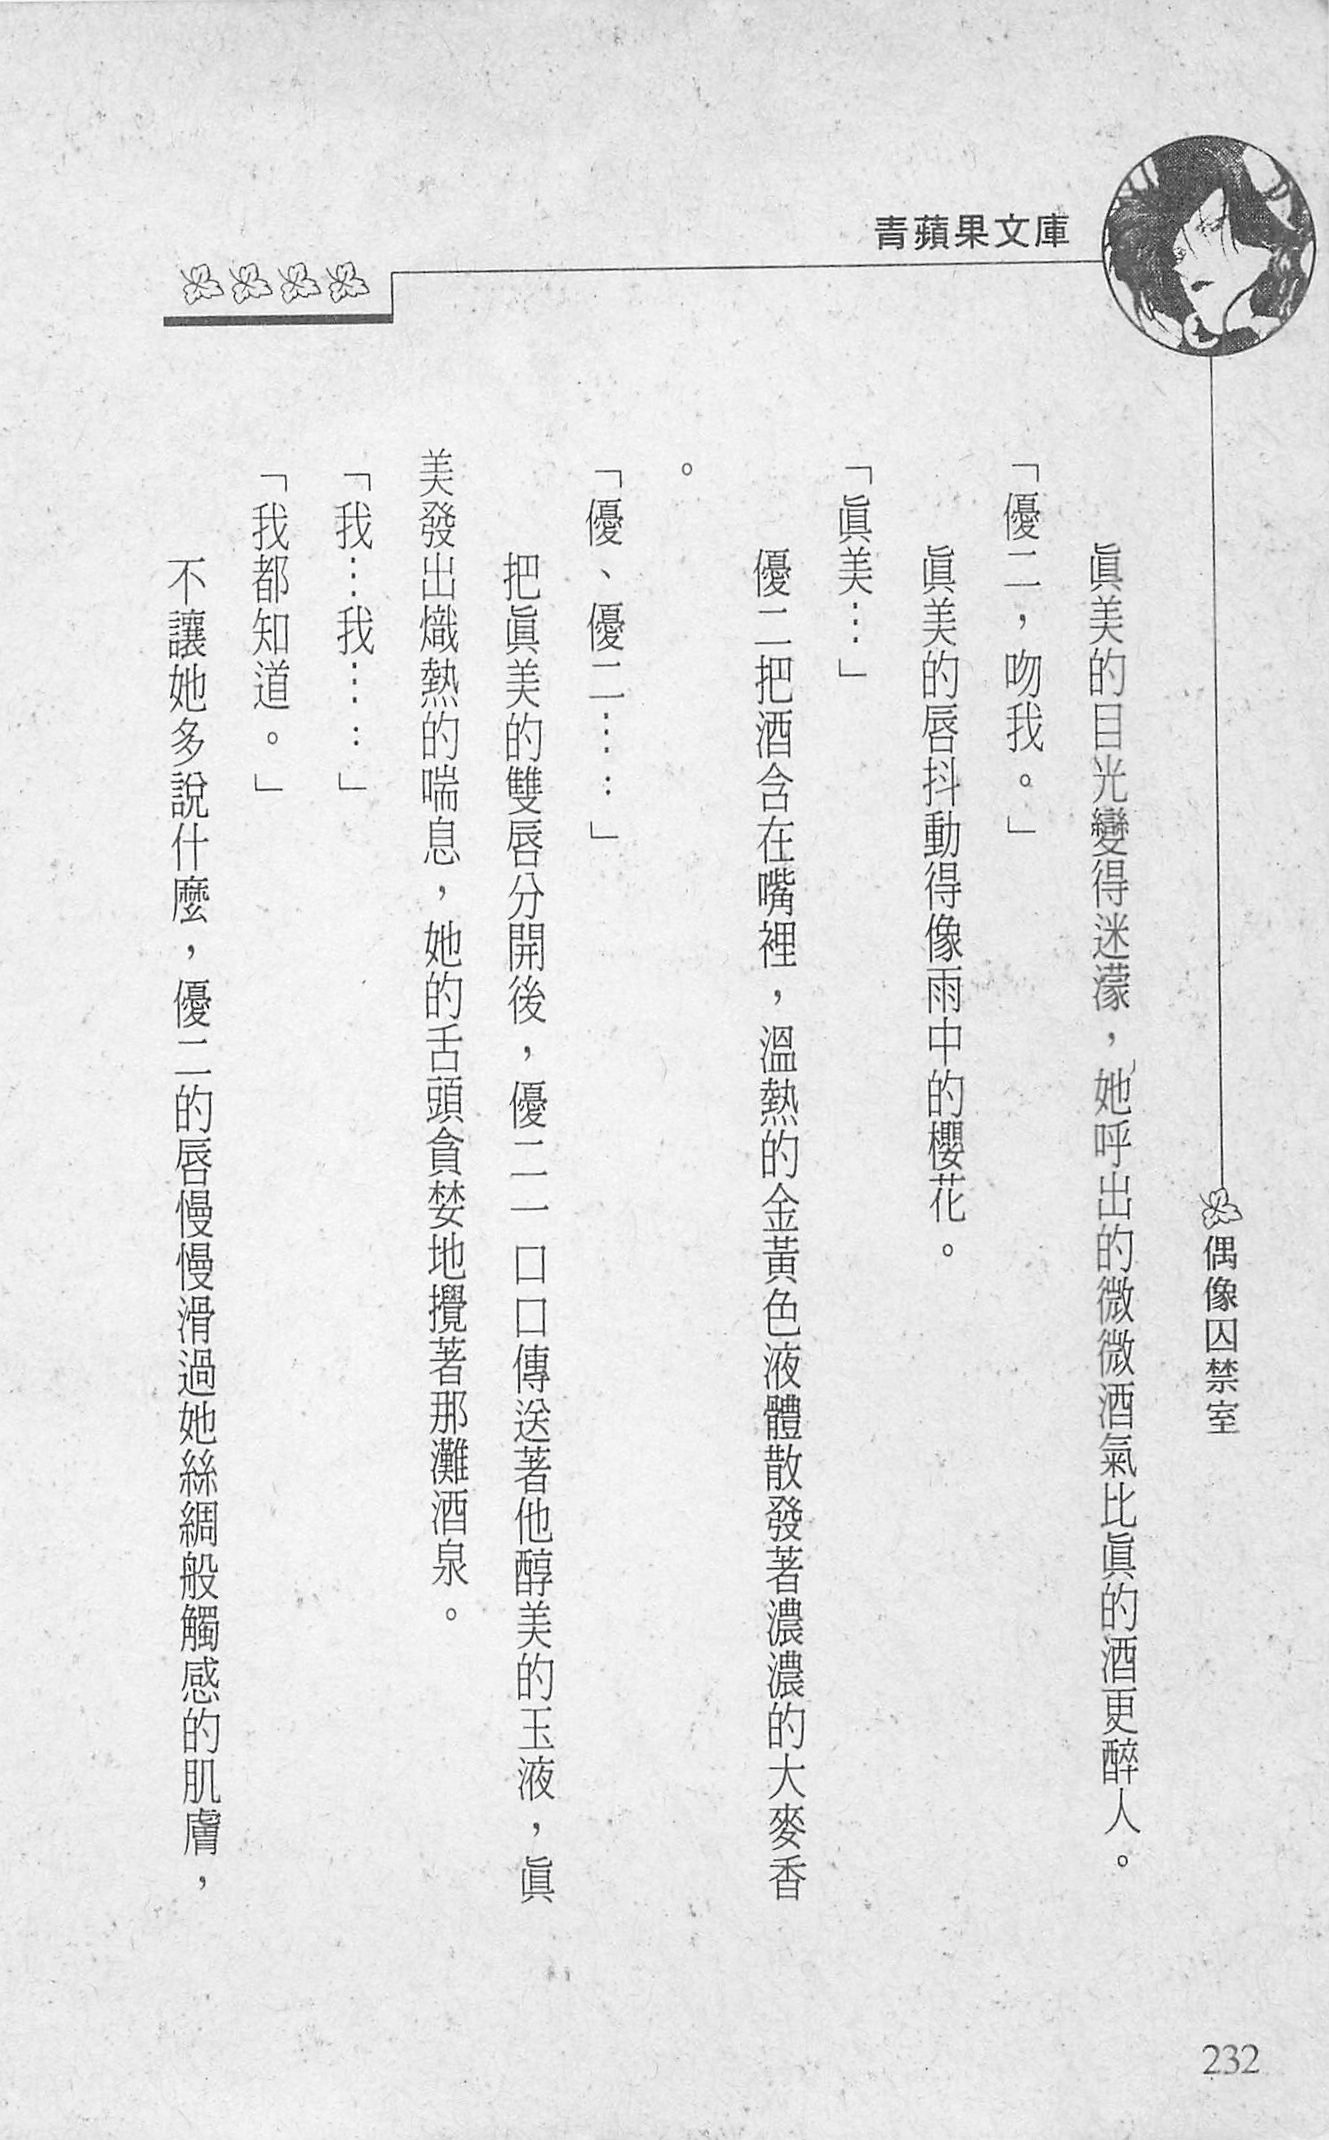 青蘋果文庫
偶像囚禁室
眞美的目光變得迷濛，她呼出的微微酒氣比眞的酒更醉人。
「優二，吻我。」
眞美的唇抖動得像雨中的櫻花。
「眞美…」
優二把酒含在嘴裡，溫熱的金黃色液體散發著濃濃的大麥香
。
「優、優二…：」
把眞美的雙唇分開後，優二一口口傳送著他醇美的玉液，眞
美發出熾熱的喘息，她的舌頭貪婪地攪著那灘酒泉。
「我…我…：」
「我都知道。」
不讓她多說什麼，優二的唇慢慢滑過她絲綢般觸感的肌膚，
232